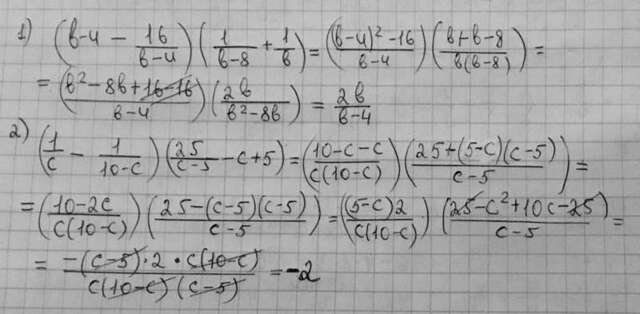 1) (в-4 - 16/(в-4)) (1/(в-8) + 1/в) = (((в-4)²-16)/(в-4)) ((в+в-8)/(в(в-8))) =
= ((в²-8в+16-16)/(в-4)) (2в/(в²-8в)) = 2в/(в-4)
2) (1/c - 1/(10-c)) (25/(c-5) - c+5) = ((10-c-c)/(c(10-c))) ((25+(5-c)(c-5))/(c-5)) =
= ((10-2c)/(c(10-c))) ((25-(c-5)(c-5))/(c-5)) = ((5-c)2/(c(10-c))) ((25-c²+10c-25)/(c-5)) =
= (-(c-5)·2·c(10-c))/(c(10-c)(c-5)) = -2